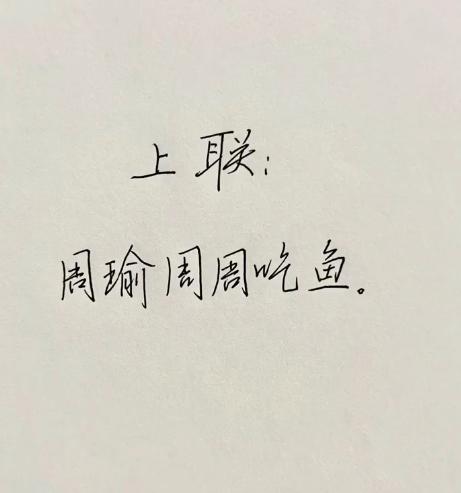 上联:
周瑜周周吃鱼。